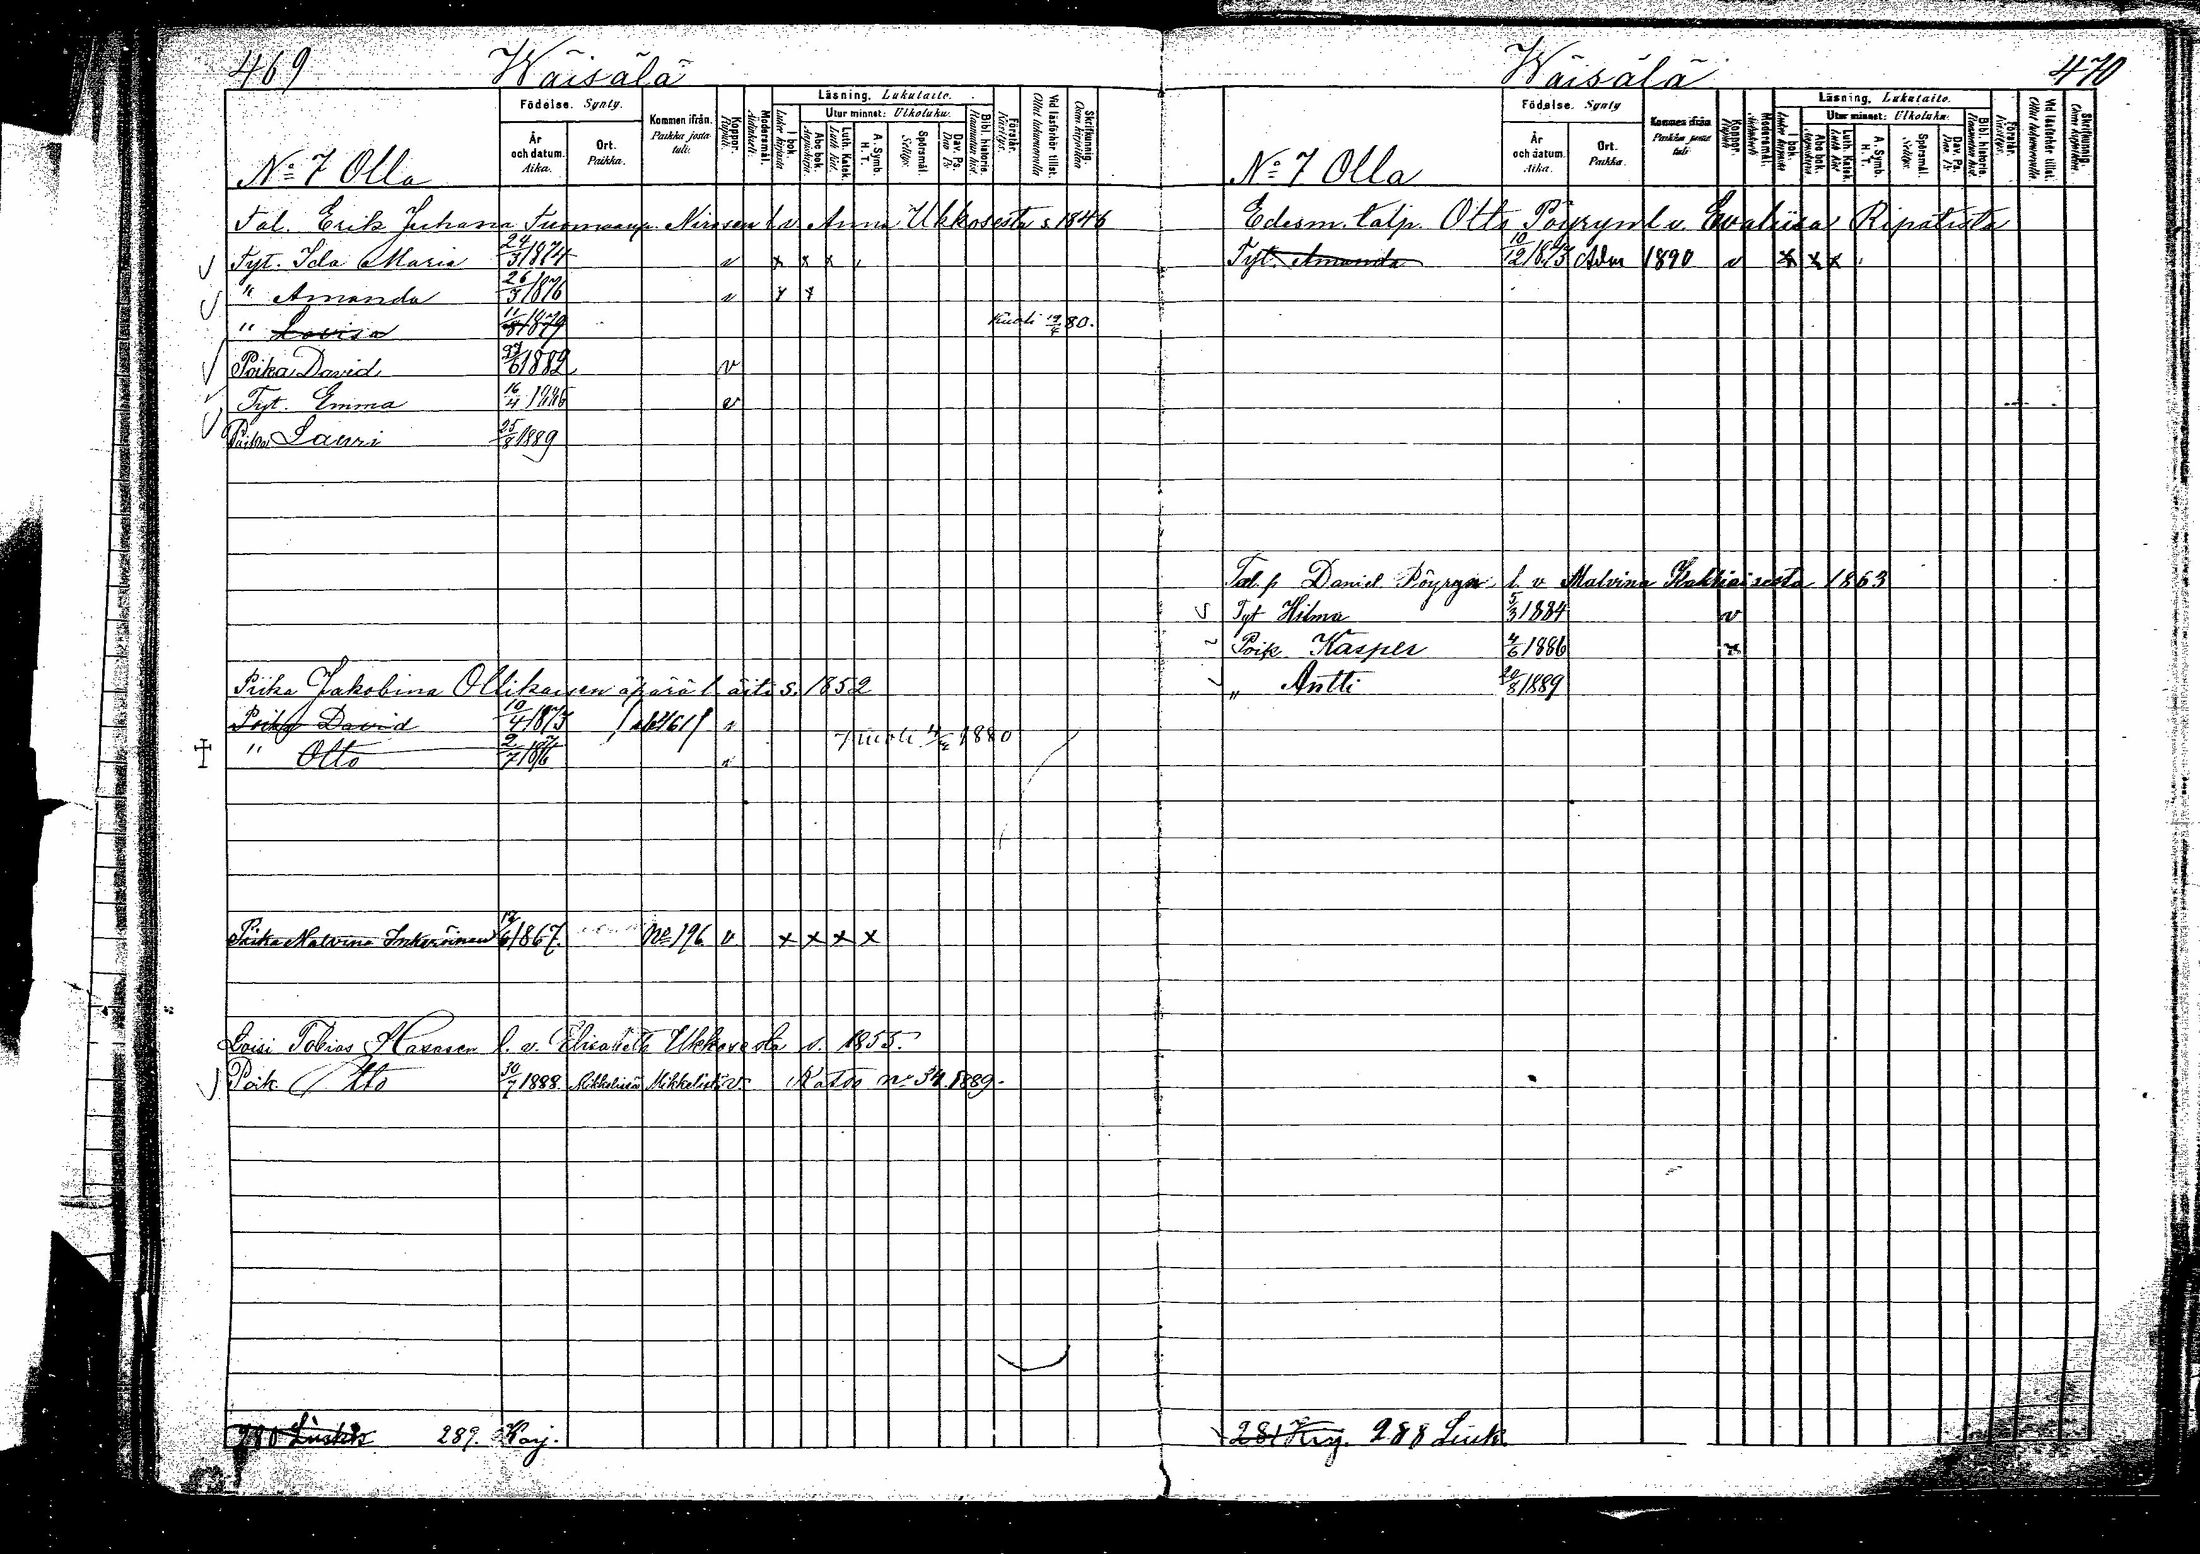 469 Wäisälä
Födelse. Synty.
Kommen ifrån. Paikka josta tuli.
Koppor. Rupuli.
Modersmål. Äidinkieli.
Läsning. Lukutaito.
I bok. Luku kirjasta
Utur minnet: Ulkoluku.
Abc bok. Aapiskirja.
Luth. Katek. Luth. kat.
A. Symb. H. T.
Spörsmål. Selitys.
Dav. Ps. Dav. Ps.
Bibl. historie. Raamatun hist.
Förstår. Käsitys.
Vid läsförhör tillst. Ollut lukuvuorolla
Skriftunning. Osaa kirjoittaa
År och datum. Aika.
Ort. Paikka.
No 7 Olla
Tal. Erik Juhana Tuomaanp. Nirosen l. v. Anna Ukkosesta s. 1846
Tyt. Ida Maria 24/3 1874 v x x x
" Amanda 26/3 1876 v x x
" Lovisa 11/8 1879 Kuoli 19/4 80.
Poika David 27/6 1882 v
Tyt. Emma 16/4 1886 v
Poika Lauri 25/8 1889
Piika Jakobina Ollikaisen äpärä l. äiti s. 1852
Poika David 10/4 1873
" Otto 2/7 1876 Kuoli 1880
Piika Malvina Inkeröinen 17/6 1867. No 196 v x x x x
Loisi Tobias Hasasen l. v. Elisabeth Ukkosesta s. 1855.
Poik Otto 30/7 1888 Mikkelissä Mikkelistä v. Katso no 34 1889.
280 Liukk 289. Karj.
Wäisälä 470
Födelse. Synty
Kommen ifrån. Paikka josta tuli
Koppor. Rupuli
Modersmål. Äidinkieli
Läsning. Lukutaito.
I bok. Luku kirjasta
Utur minnet: Ulkoluku.
Abc bok. Aapiskirja
Luth. Katek. Luth. kat
A. Symb. H. T.
Spörsmål. Selitys.
Dav. Ps. Dav. Ps.
Bibl. historie. Raamatun hist.
Förstår. Käsitys.
Vid läsförhör tillst. Ollut lukuvuorolla.
Skriftunning. Osaa kirjoittaa.
År och datum. Aika.
Ort. Paikka.
No 7 Olla
Edesm. talp. Otto Pöyryn l. v. Evaliisa Ripatista
Tyt. Amanda 10/12 1873 Adm 1890 v x x x
Tal. p Daniel Pöyryn l. v Malvina Kakkiaisesta 1863
Tyt Hilma 5/3 1884 v
Poik Kasper 4/6 1886 x
" Antti 20/8 1889
281 Krj. 288 Liuk.